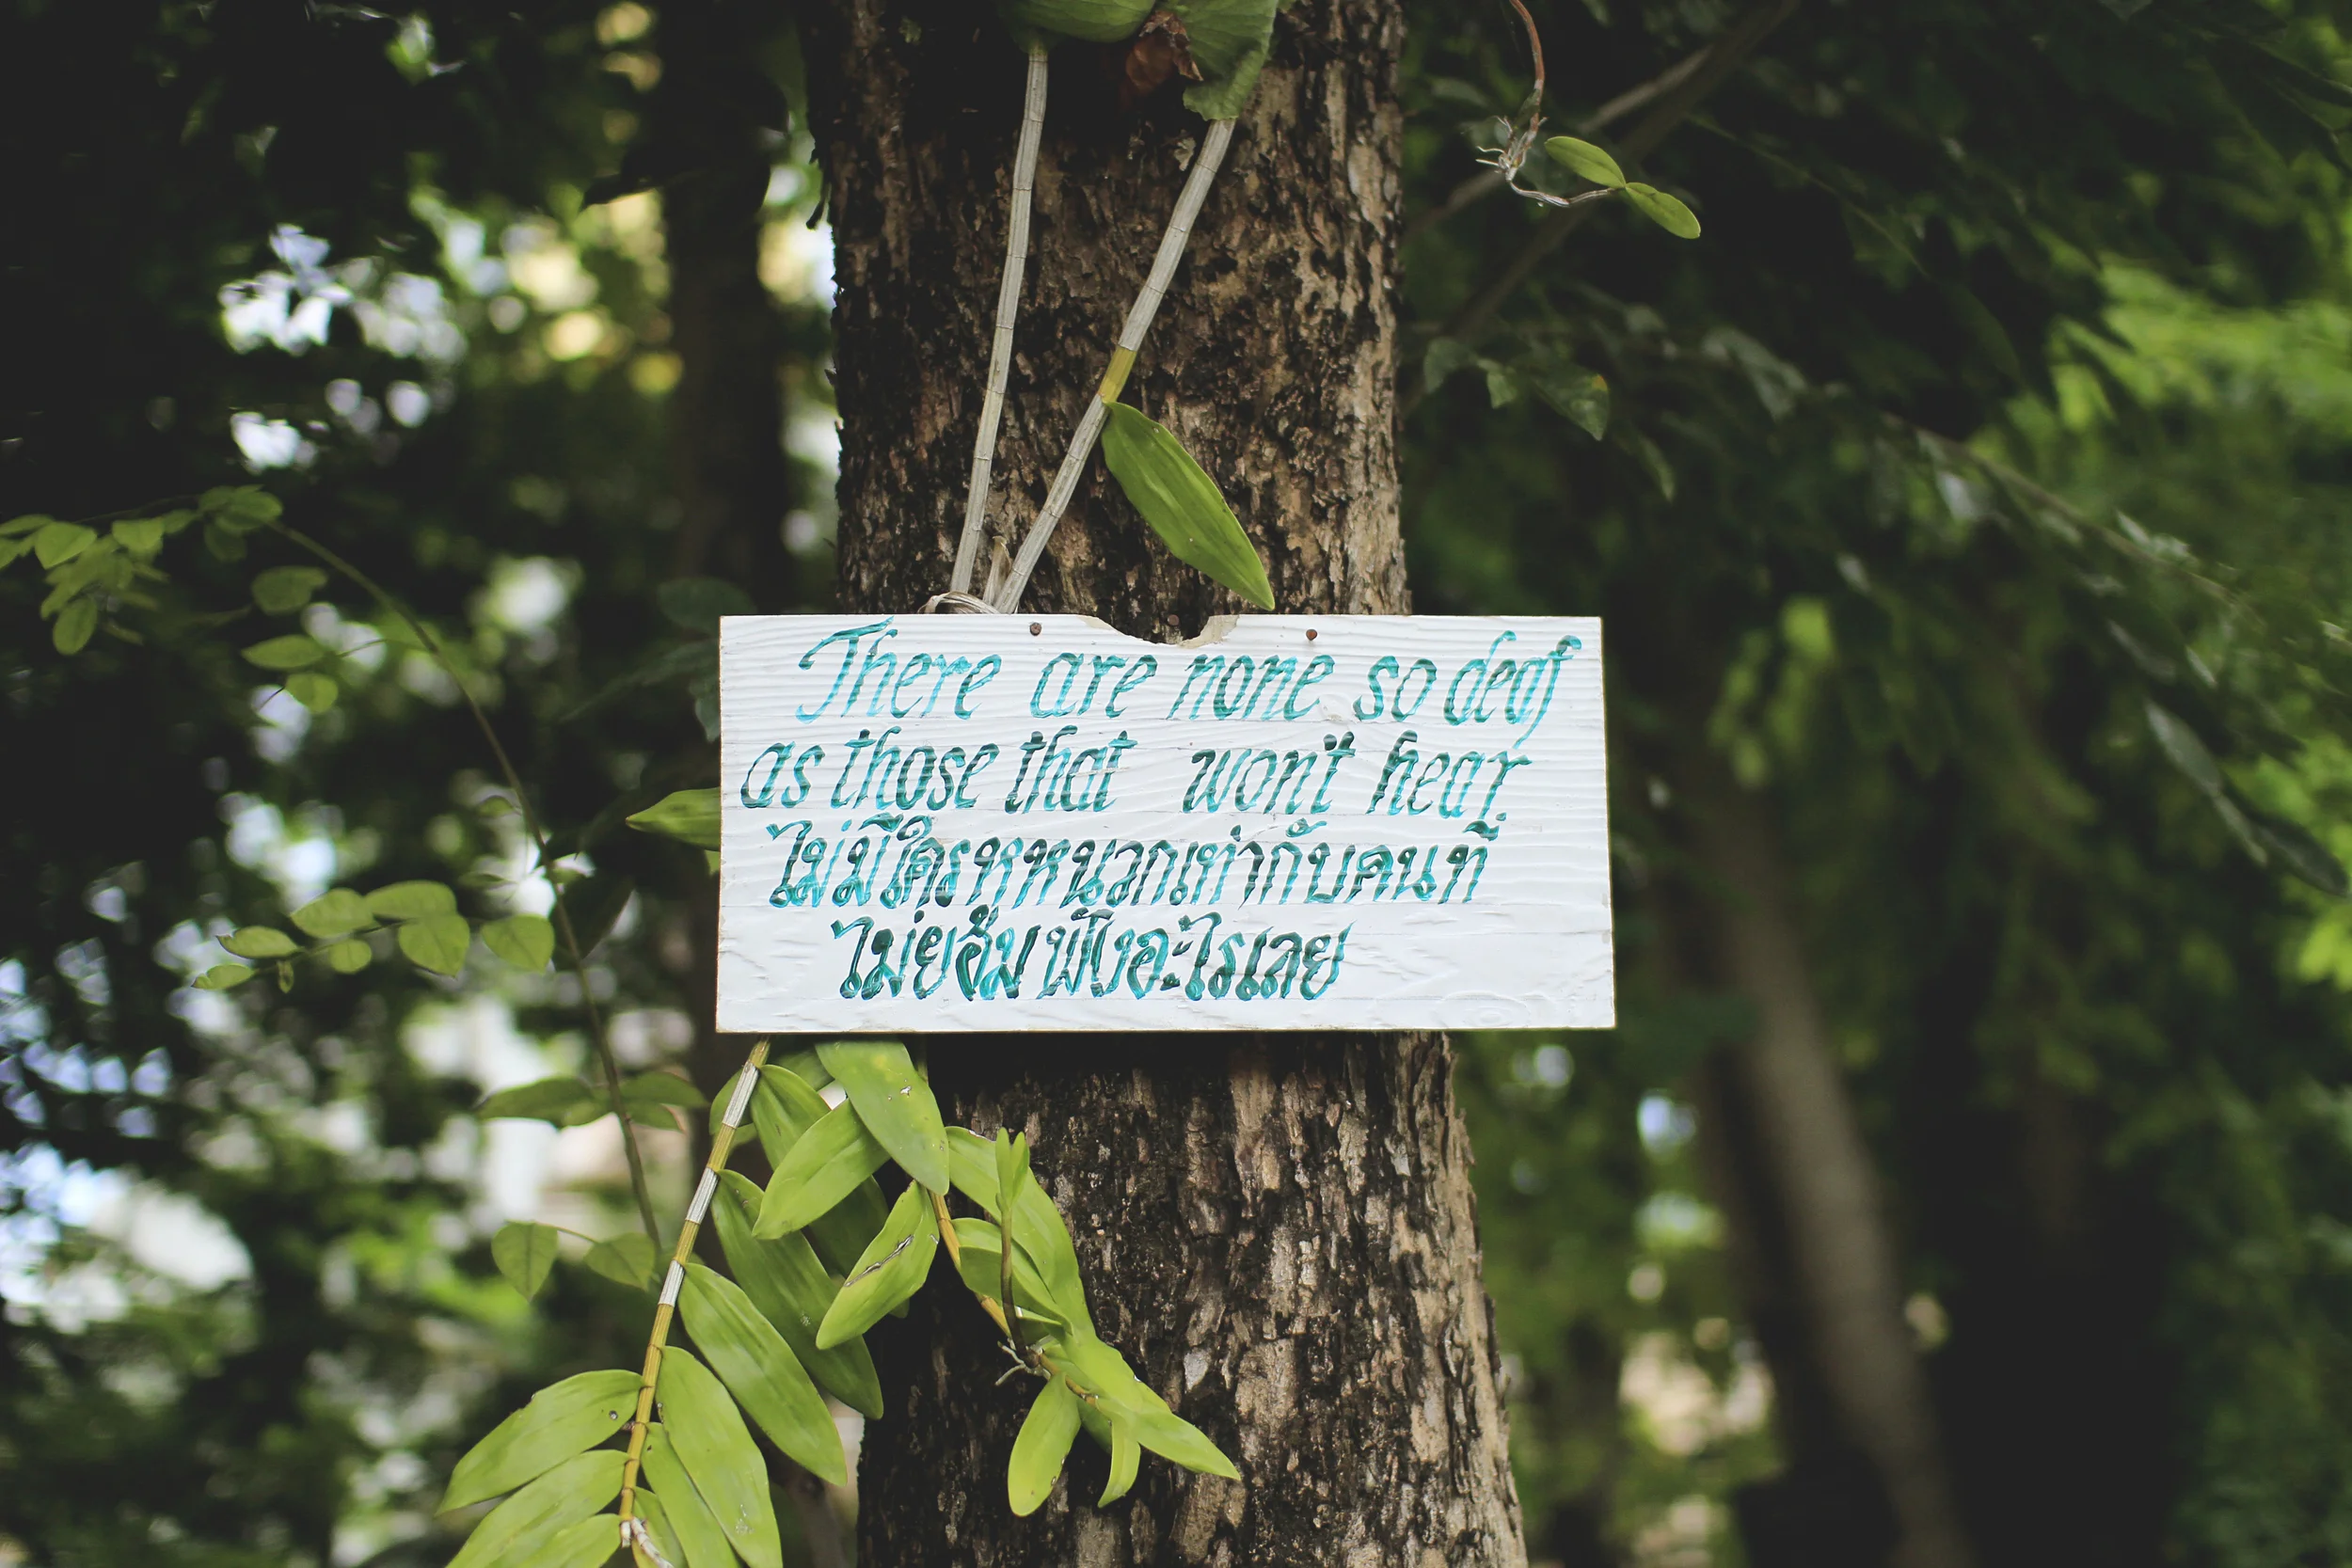 There are none so deaf
as those that won't hear.
ไม่มีใครหูหนวกเท่ากับคนที่
ไม่ยอมฟังอะไรเลย